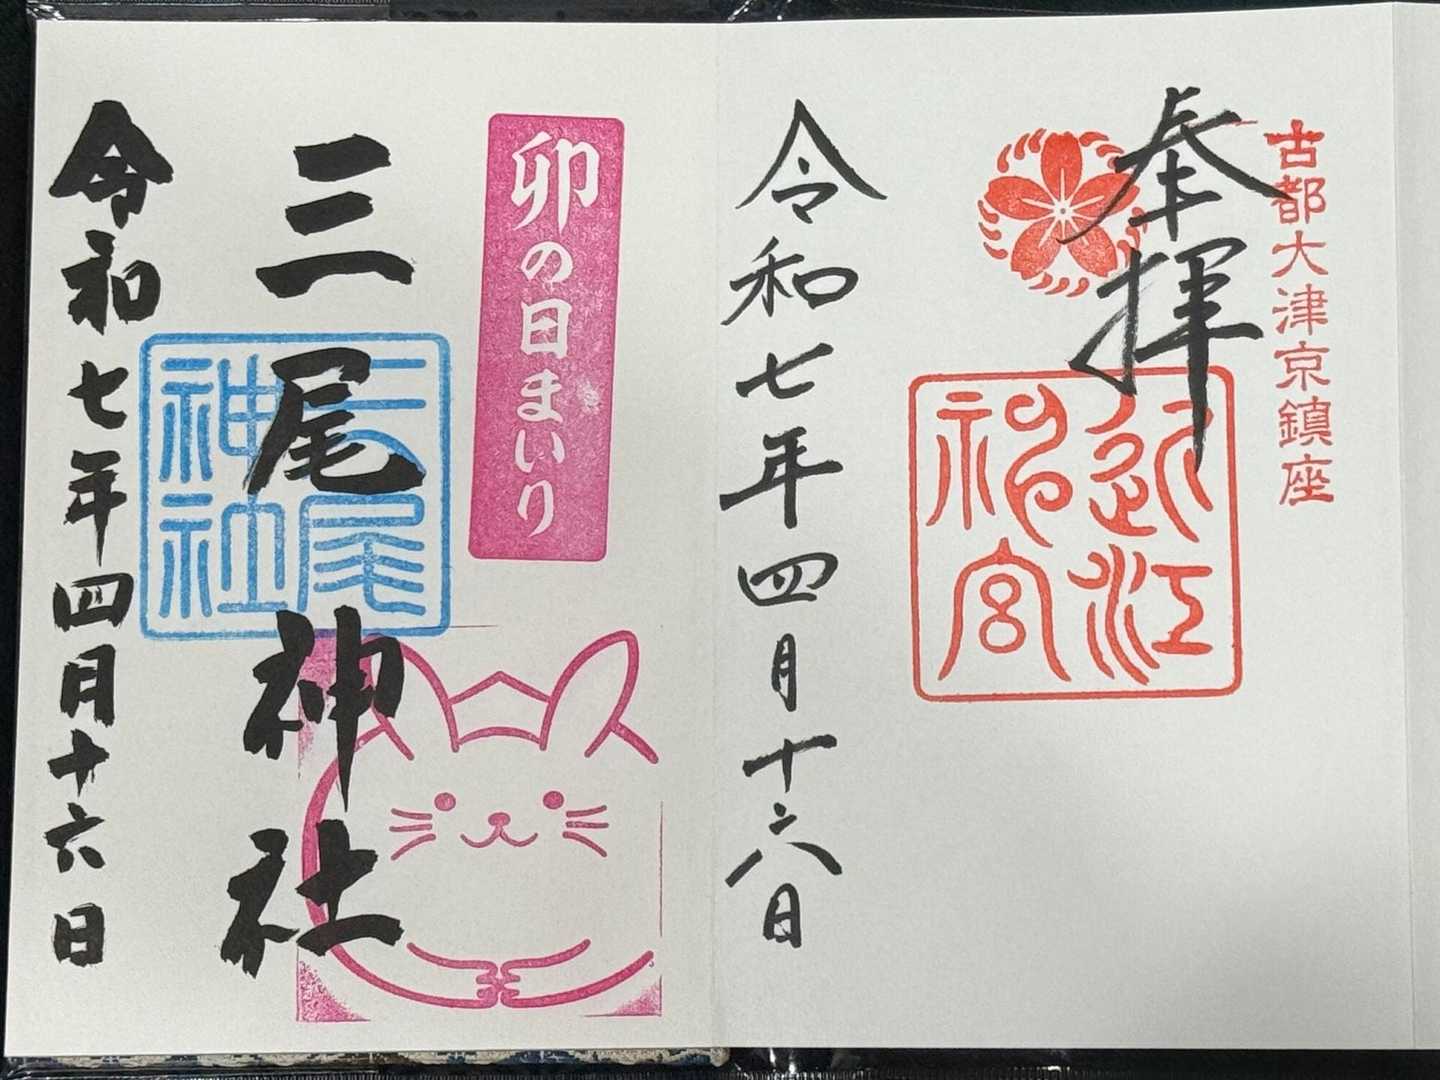 古都大津京鎮座
奉拝
近江
神宮
令和七年四月十六日
卯の日まいり
三尾神社
三尾
神社
令和七年四月十六日